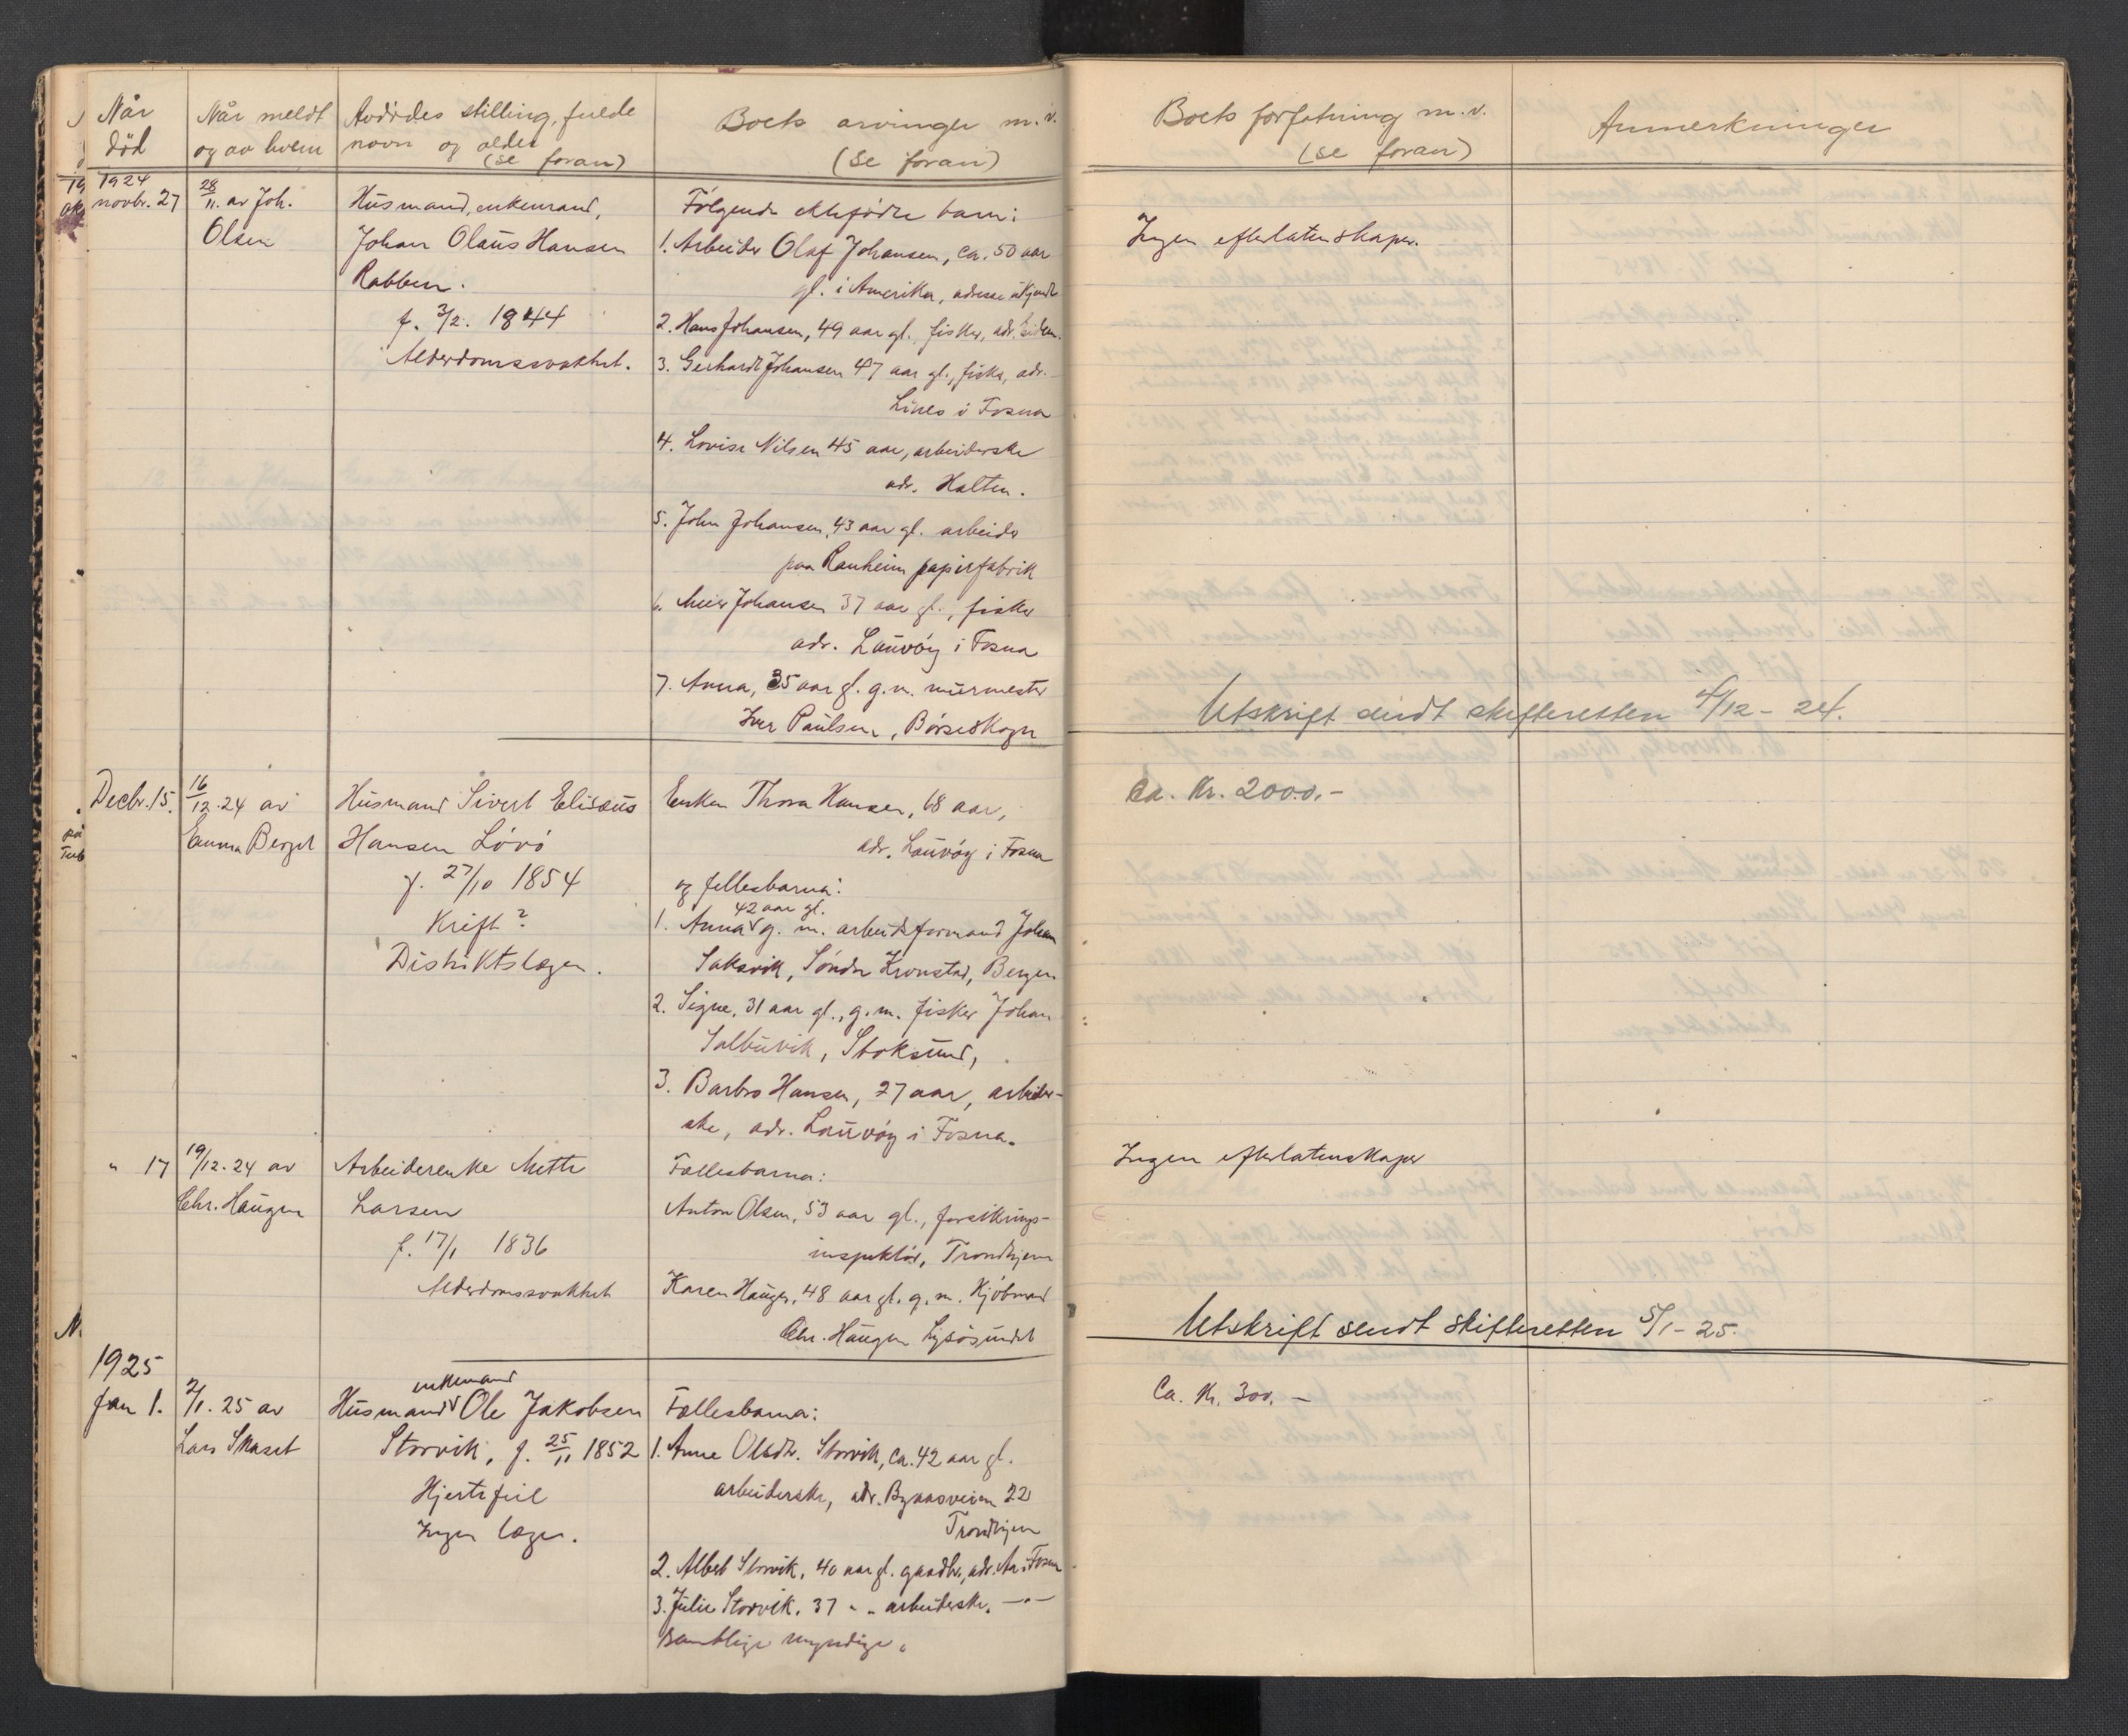 Når død
Når meldt og av hvem
Avdødes stilling, fulde navn og alder (se foran)
Boets arvinger m.v. (Se foran)
Boets forfatning m.v. (se foran)
Anmerkninger
1924
novbr. 27
28/11. av Joh.
Olsen
Husmand, enkemand,
Johan Olaus Hansen
Rabben.
f. 3/2. 1844
Alderdomssvakhet.
Følgende ektefødte barn:
1. Arbeider Olaf Johansen, ca. 50 aar
gl. i Amerika, adresse ukjendt
2. Hans Johansen, 49 aar gl. fisker, adr.
3. Gerhardt Johansen 47 aar gl., fisker, adr.
Lines i Fosna
4. Lovise Nilsen 45 aar, arbeiderske
adr. Halten.
5. John Johansen, 43 aar gl. arbeider
paa Ranheim papirfabrik
6. Meier Johansen 37 aar gl., fisker
adr. Lauvøy i Fosna
7. Anna, 35 aar gl. g.m. murmester
Iver Paulsen, Børseskogn
Ingen efterlatenskaper.
Utskrift sendt skifteretten 4/12 - 24.
Decbr. 15.
16/12.24 av
Emma Berget
Husmand Sivert Elisæus
Hansen Løvø
f. 27/10 1854
Kræft?
Distriktslægen.
Enken Thora Hansen, 68 aar,
adr. Lauvøy i Fosna
og fellesbarna:
42 aar gl.
1. Anna g. m. arbeidsformand Johan
Saksvik, Søndre Kronstad, Bergen
2. Signe, 31 aar gl., g.m. fisker Johan
Salbuvik, Stoksund,
3. Barbro Hansen, 27 aar, arbeider-
ske, adr. Lauvøy i Fosna.
Ca. Kr. 2000.-
" 17
19/12.24 av
Chr. Haugen
Arbeiderenke Mette
Larsen
f. 17/1 1836
Alderdomssvakhet
Fællesbarna:
Anton Olsen, 53 aar gl., forsikrings-
inspektør, Trondhjem
Karen Haugen, 48 aar gl. g. m. Kjøbmand
Chr. Haugen Lysøsundet
Ingen efterlatenskaper
Utskrift sendt skifteretten 5/1 - 25.
1925
Jan 1.
2/1. 25 av
Lars Skaset
enkemand
Husmand Ole Jakobsen
Storvik, f. 25/11 1852
Hjertefeil
Ingen læge.
Fællesbarna:
1. Anne Olsdtr. Storvik, ca. 42 aar gl.
arbeiderske, adr. Bynæsveien 22
Trondhjem
2. Albert Storvik, 40 aar gl. gaardbr., adr. Aa i Fosna
3. Julie Storvik, 37 " " arbeiderske, —"—
Samtlige myndige.
Ca. Kr. 300.-